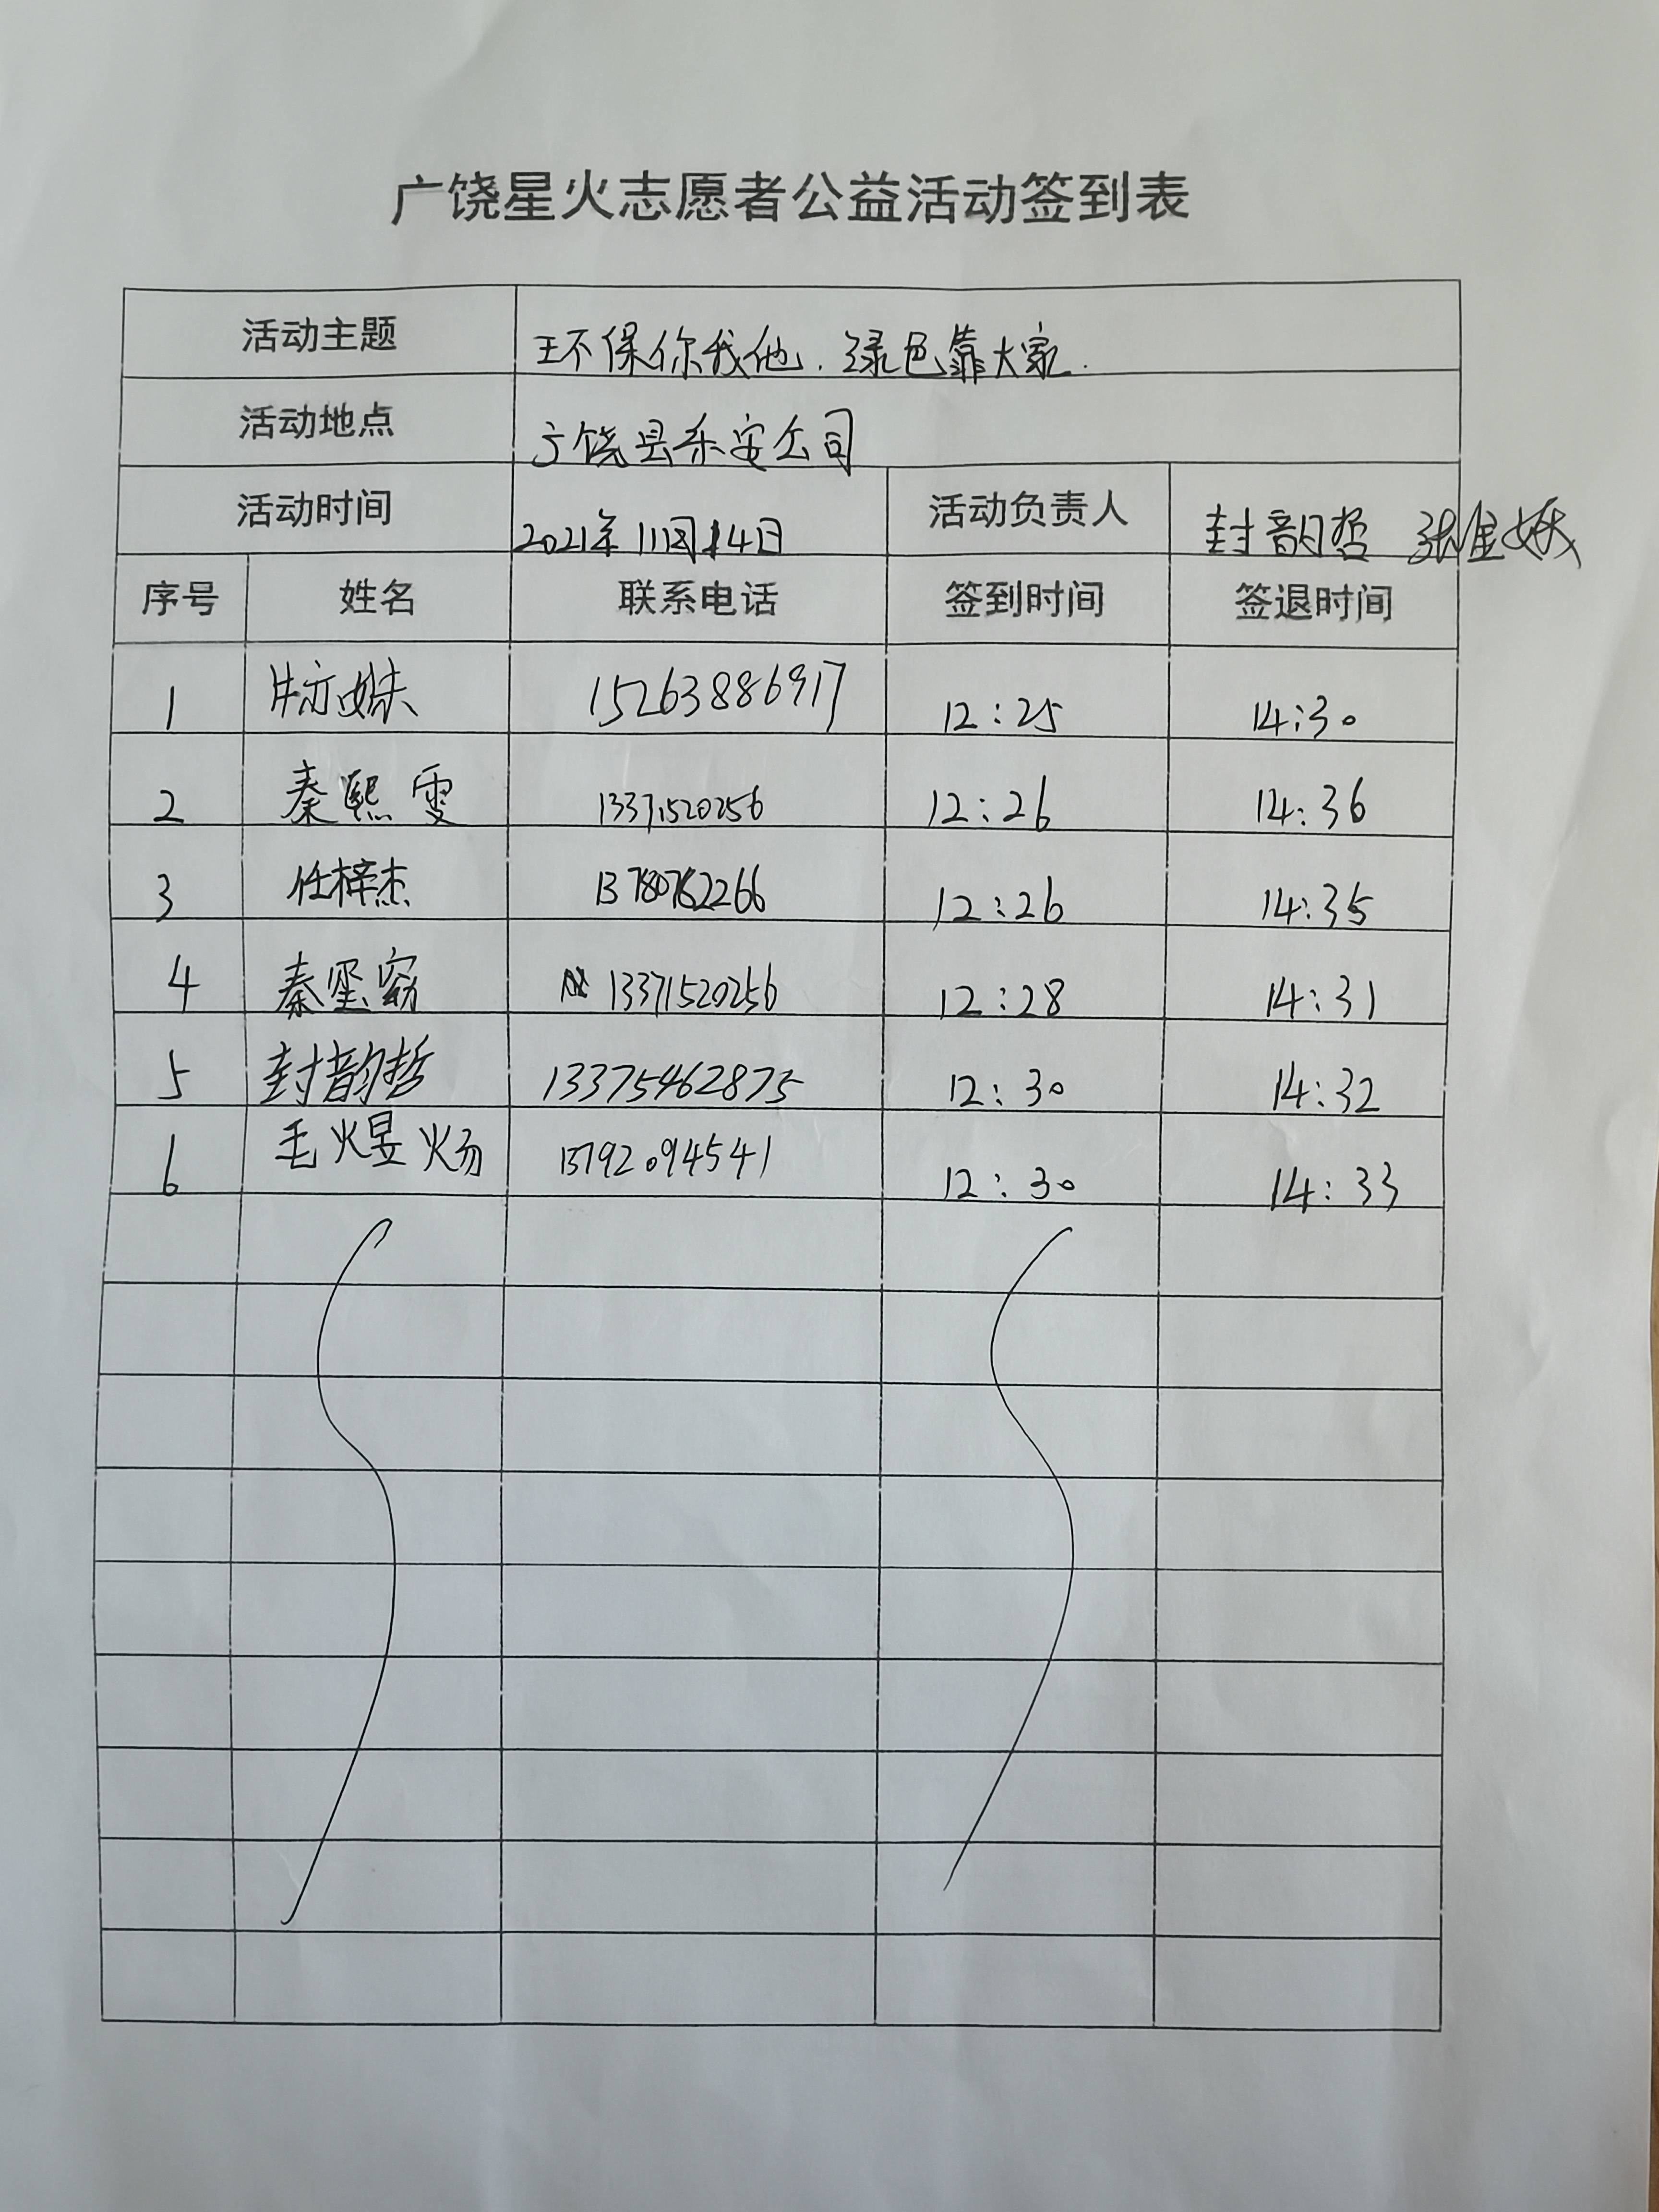 广饶星火志愿者公益活动签到表
活动主题 环保你我他.绿色靠大家.
活动地点 广饶县乐安公司
活动时间 2021年11月14日 活动负责人 封韵哲
序号 姓名 联系电话 签到时间 签退时间
1 15263886917 12:25 14:30
2 秦熙雯 13371520256 12:26 14:36
3 任梓杰 12:26 14:35
4 秦 13371520256 12:28 14:31
5 封韵哲 13375462875 12:30 14:32
6 毛煜炀 13792094541 12:30 14:33